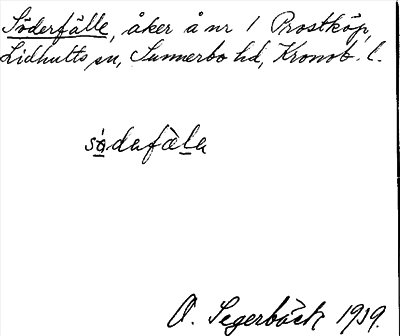 Söderfälle, åker å nr 1 Prostköp,
Lidhults sn, Sunnerbo hd, Kronob. l.
O. Segerbäck 1939.